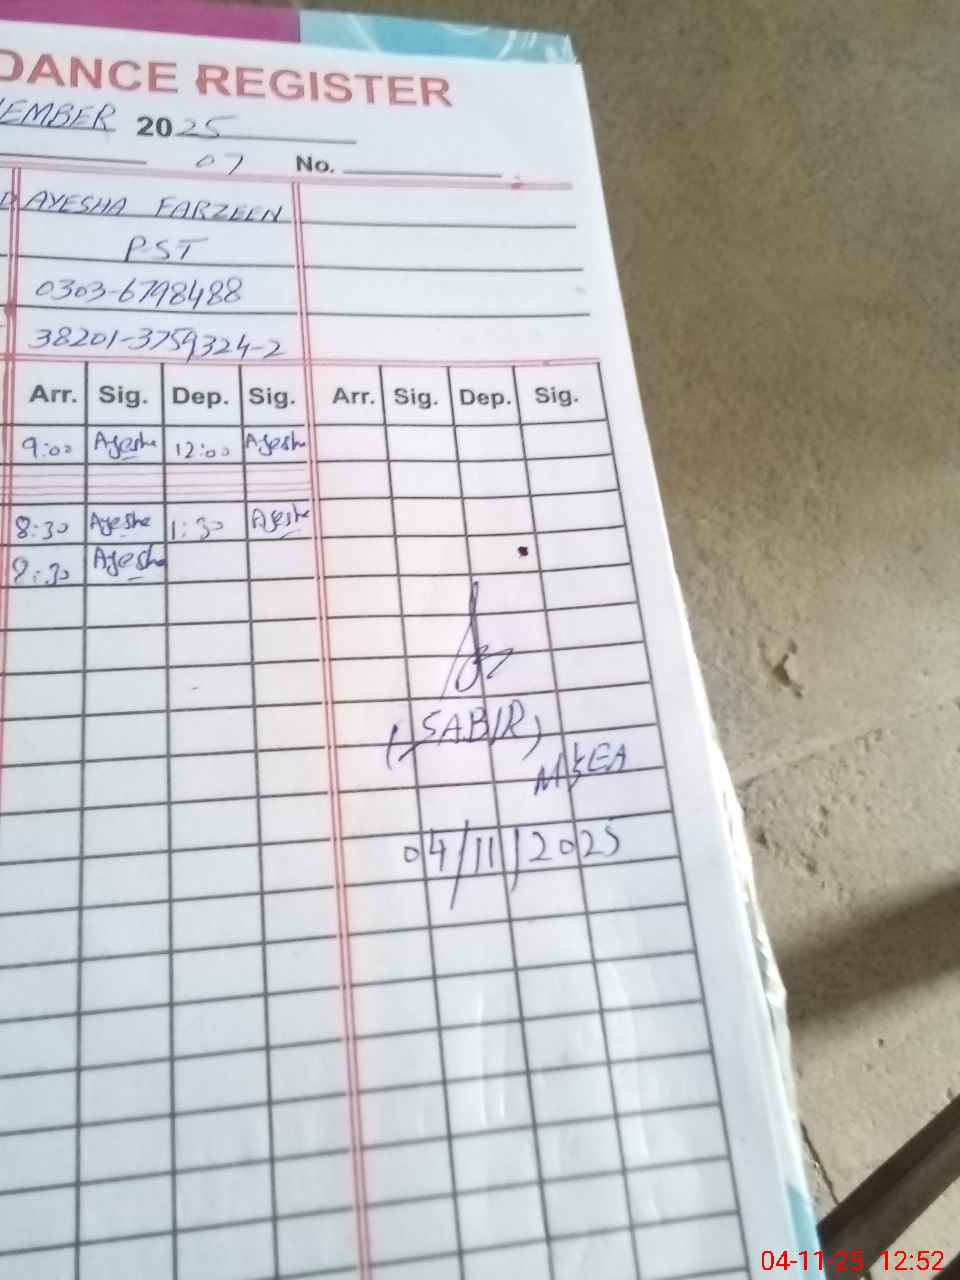 DANCE REGISTER
EMBER 2025
07 No.
AYESHA FARZEEN
PST
0303-6798488
38201-3759324-2
Arr. Sig. Dep. Sig. Arr. Sig. Dep. Sig.
9:00 Ayesha 12:00 Ayesha
8:30 Ayesha 1:30 Ayesha
8:30 Ayesha
(SABIR)
04/11/2025
04-11-25 12:52